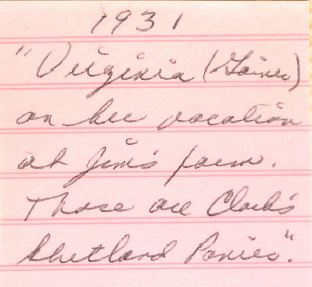 1931
"Virginia (Gaines)
on her vacation
at Jim's farm.
Those are Clark's
Shetland Ponies".